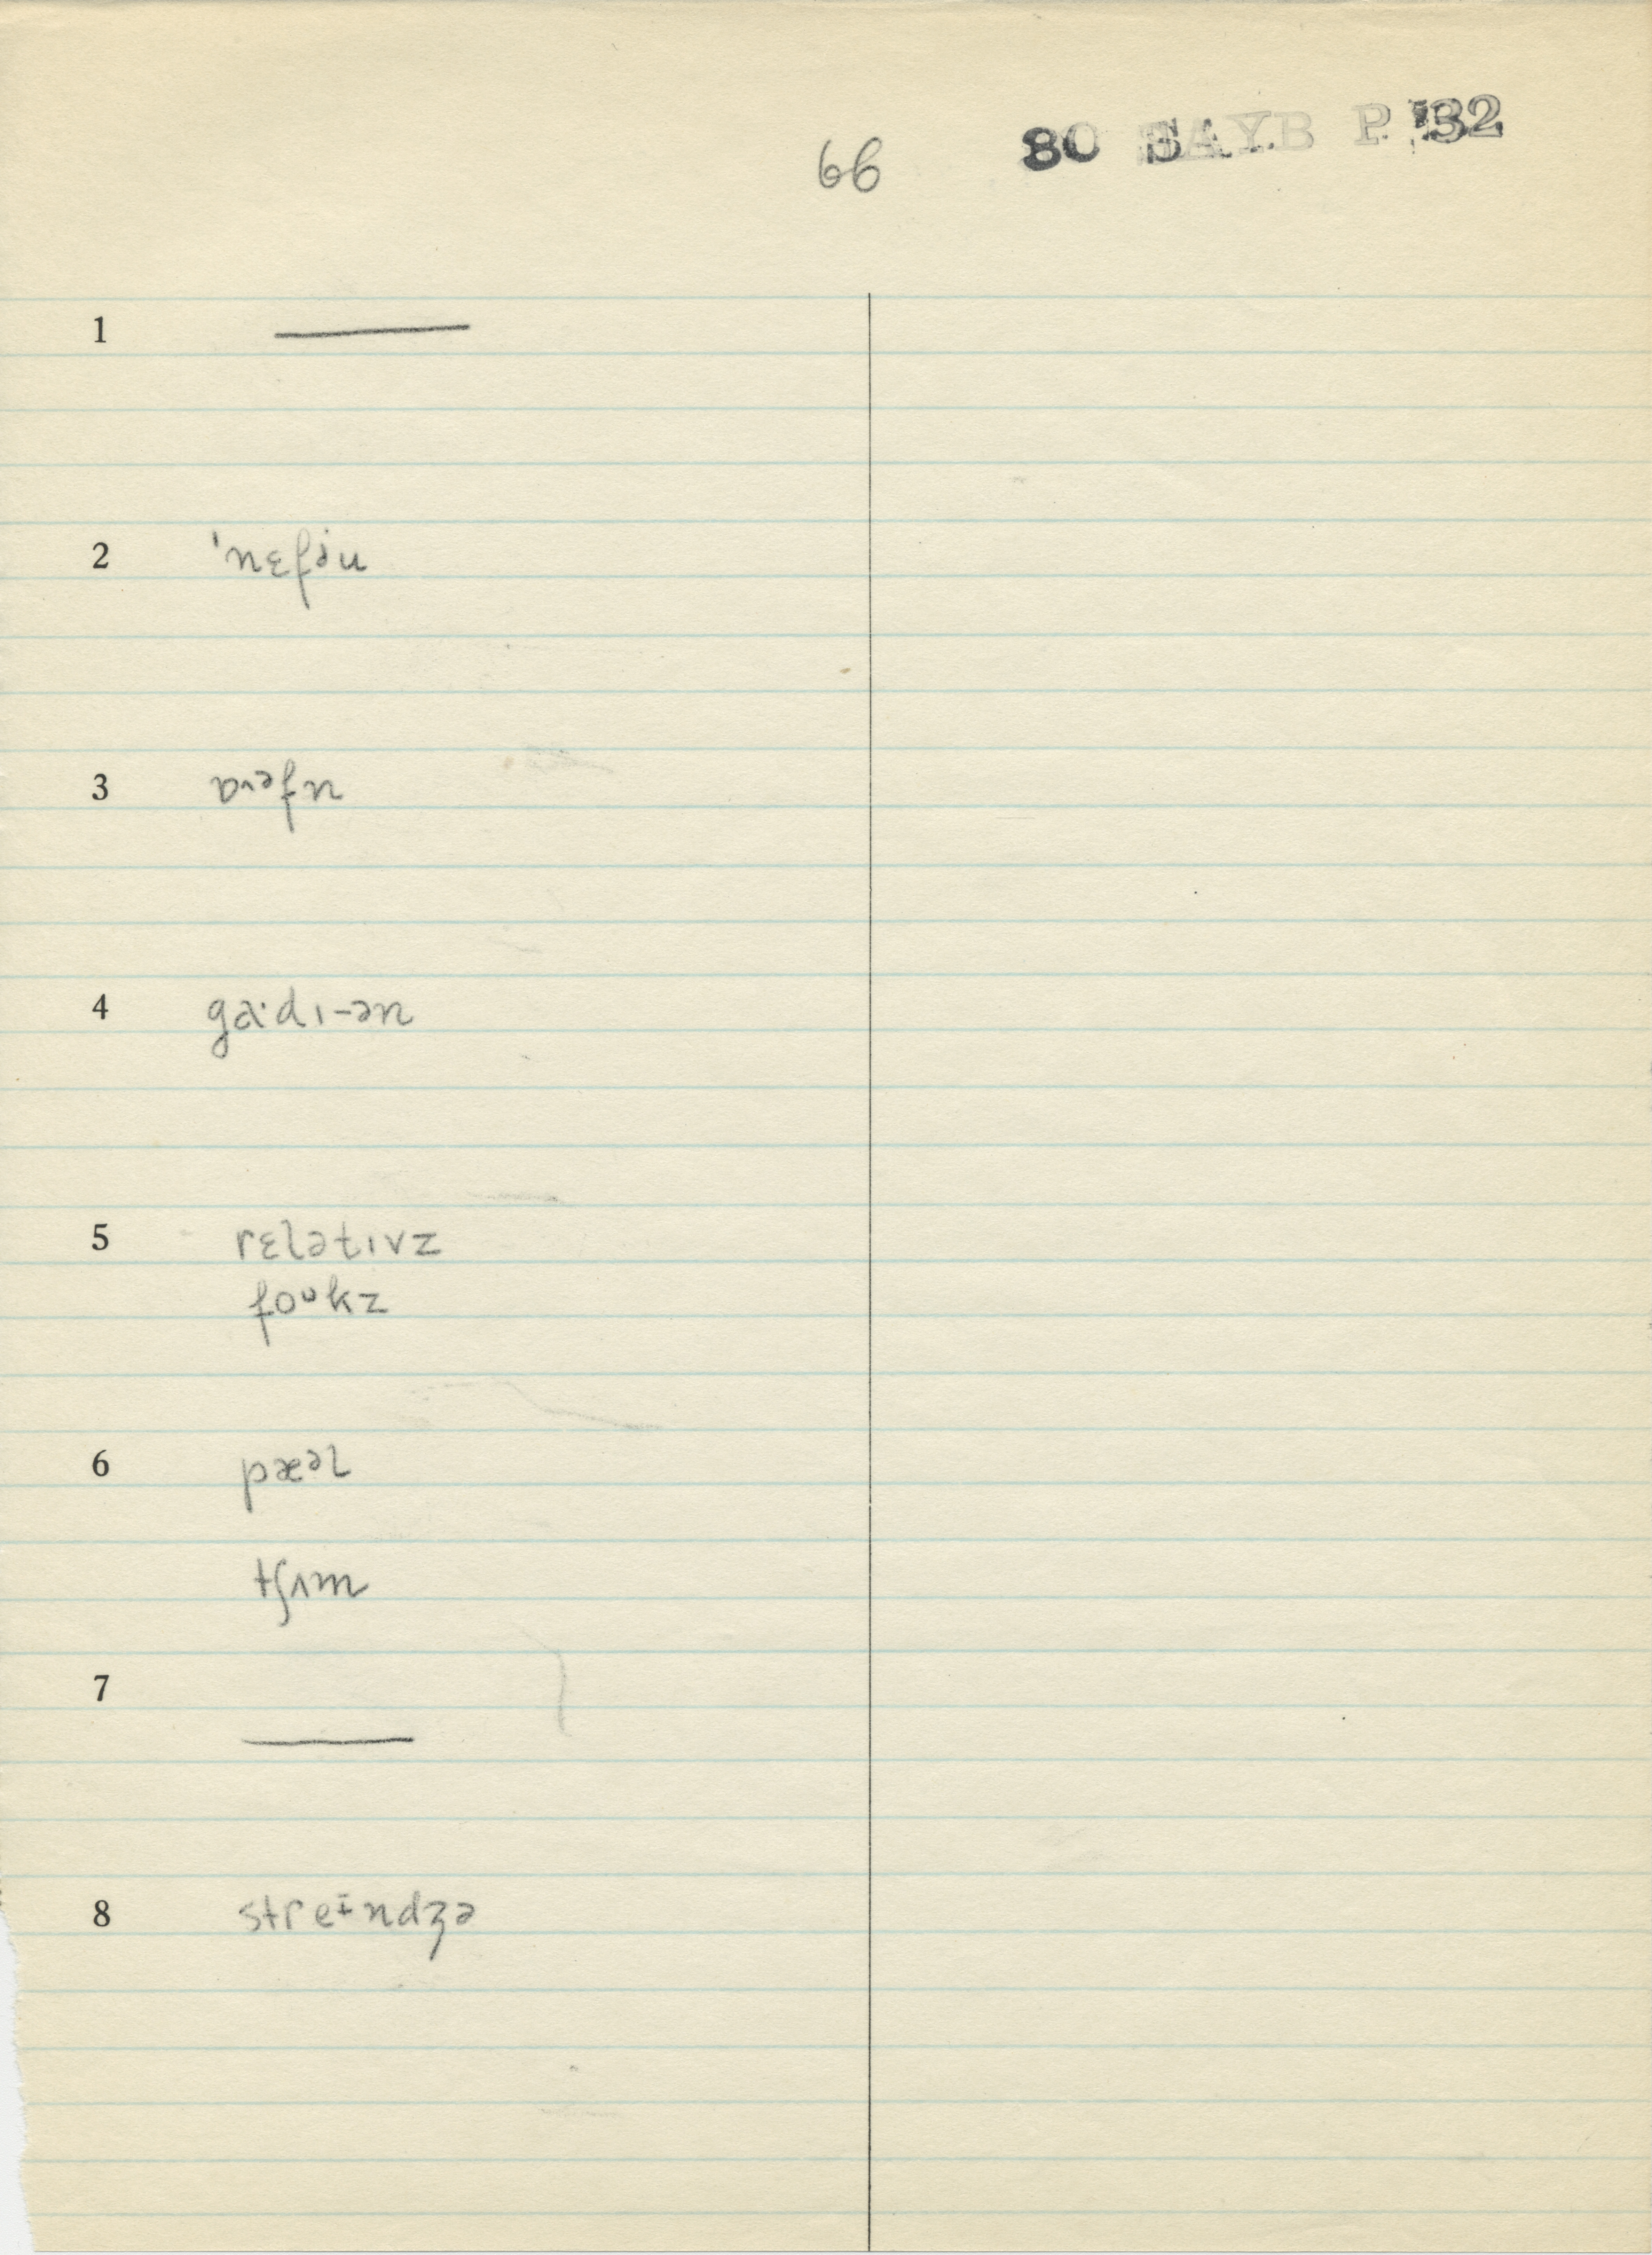 66 80 BAYB P '32
1 ———
2 ˈnɛfɪ̯u
3 ɒɪᵊfn
4 ga·dɪ-ən
5 rɛlətɪvz
foᵘkz
6 pæᵊl
tʃʌm
7 ———
8 streᶤndʒə